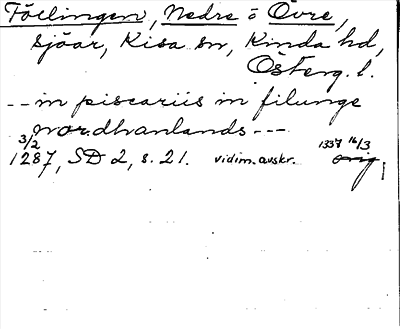 Föllingen, Nedre o Övre,
sjöar, Kisa sn, Kinda hd,
Österg. l.
-- in piscariis in filunge
nordhanlands ---
3/2 1337 16/3
1287, SD 2, s. 21. vidim. avskr. orig.